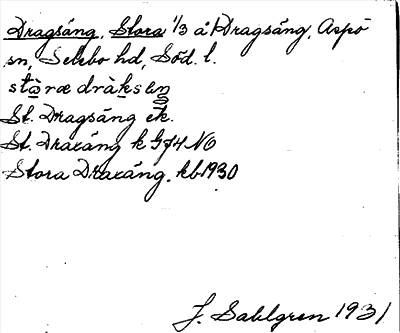 Dragsäng, Stora 1/3 å Dragsäng, Aspö
sn, Selebo hd, Söd. l.
stɷ̀ræ dràksɛŋ
St. Dragsäng ek.
St. Draxäng k G74 NO
Stora Draxäng. kb 1930
J. Sahlgren 1931